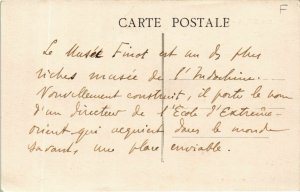 F
CARTE POSTALE
Le Musée Finot est un des plus
riches musée de l'Indochine.
Nouvellement construit, il porte le nom
d'un directeur de l'Ecole d'Extrême-
orient qui acquient dans le monde
savant, une place enviable.